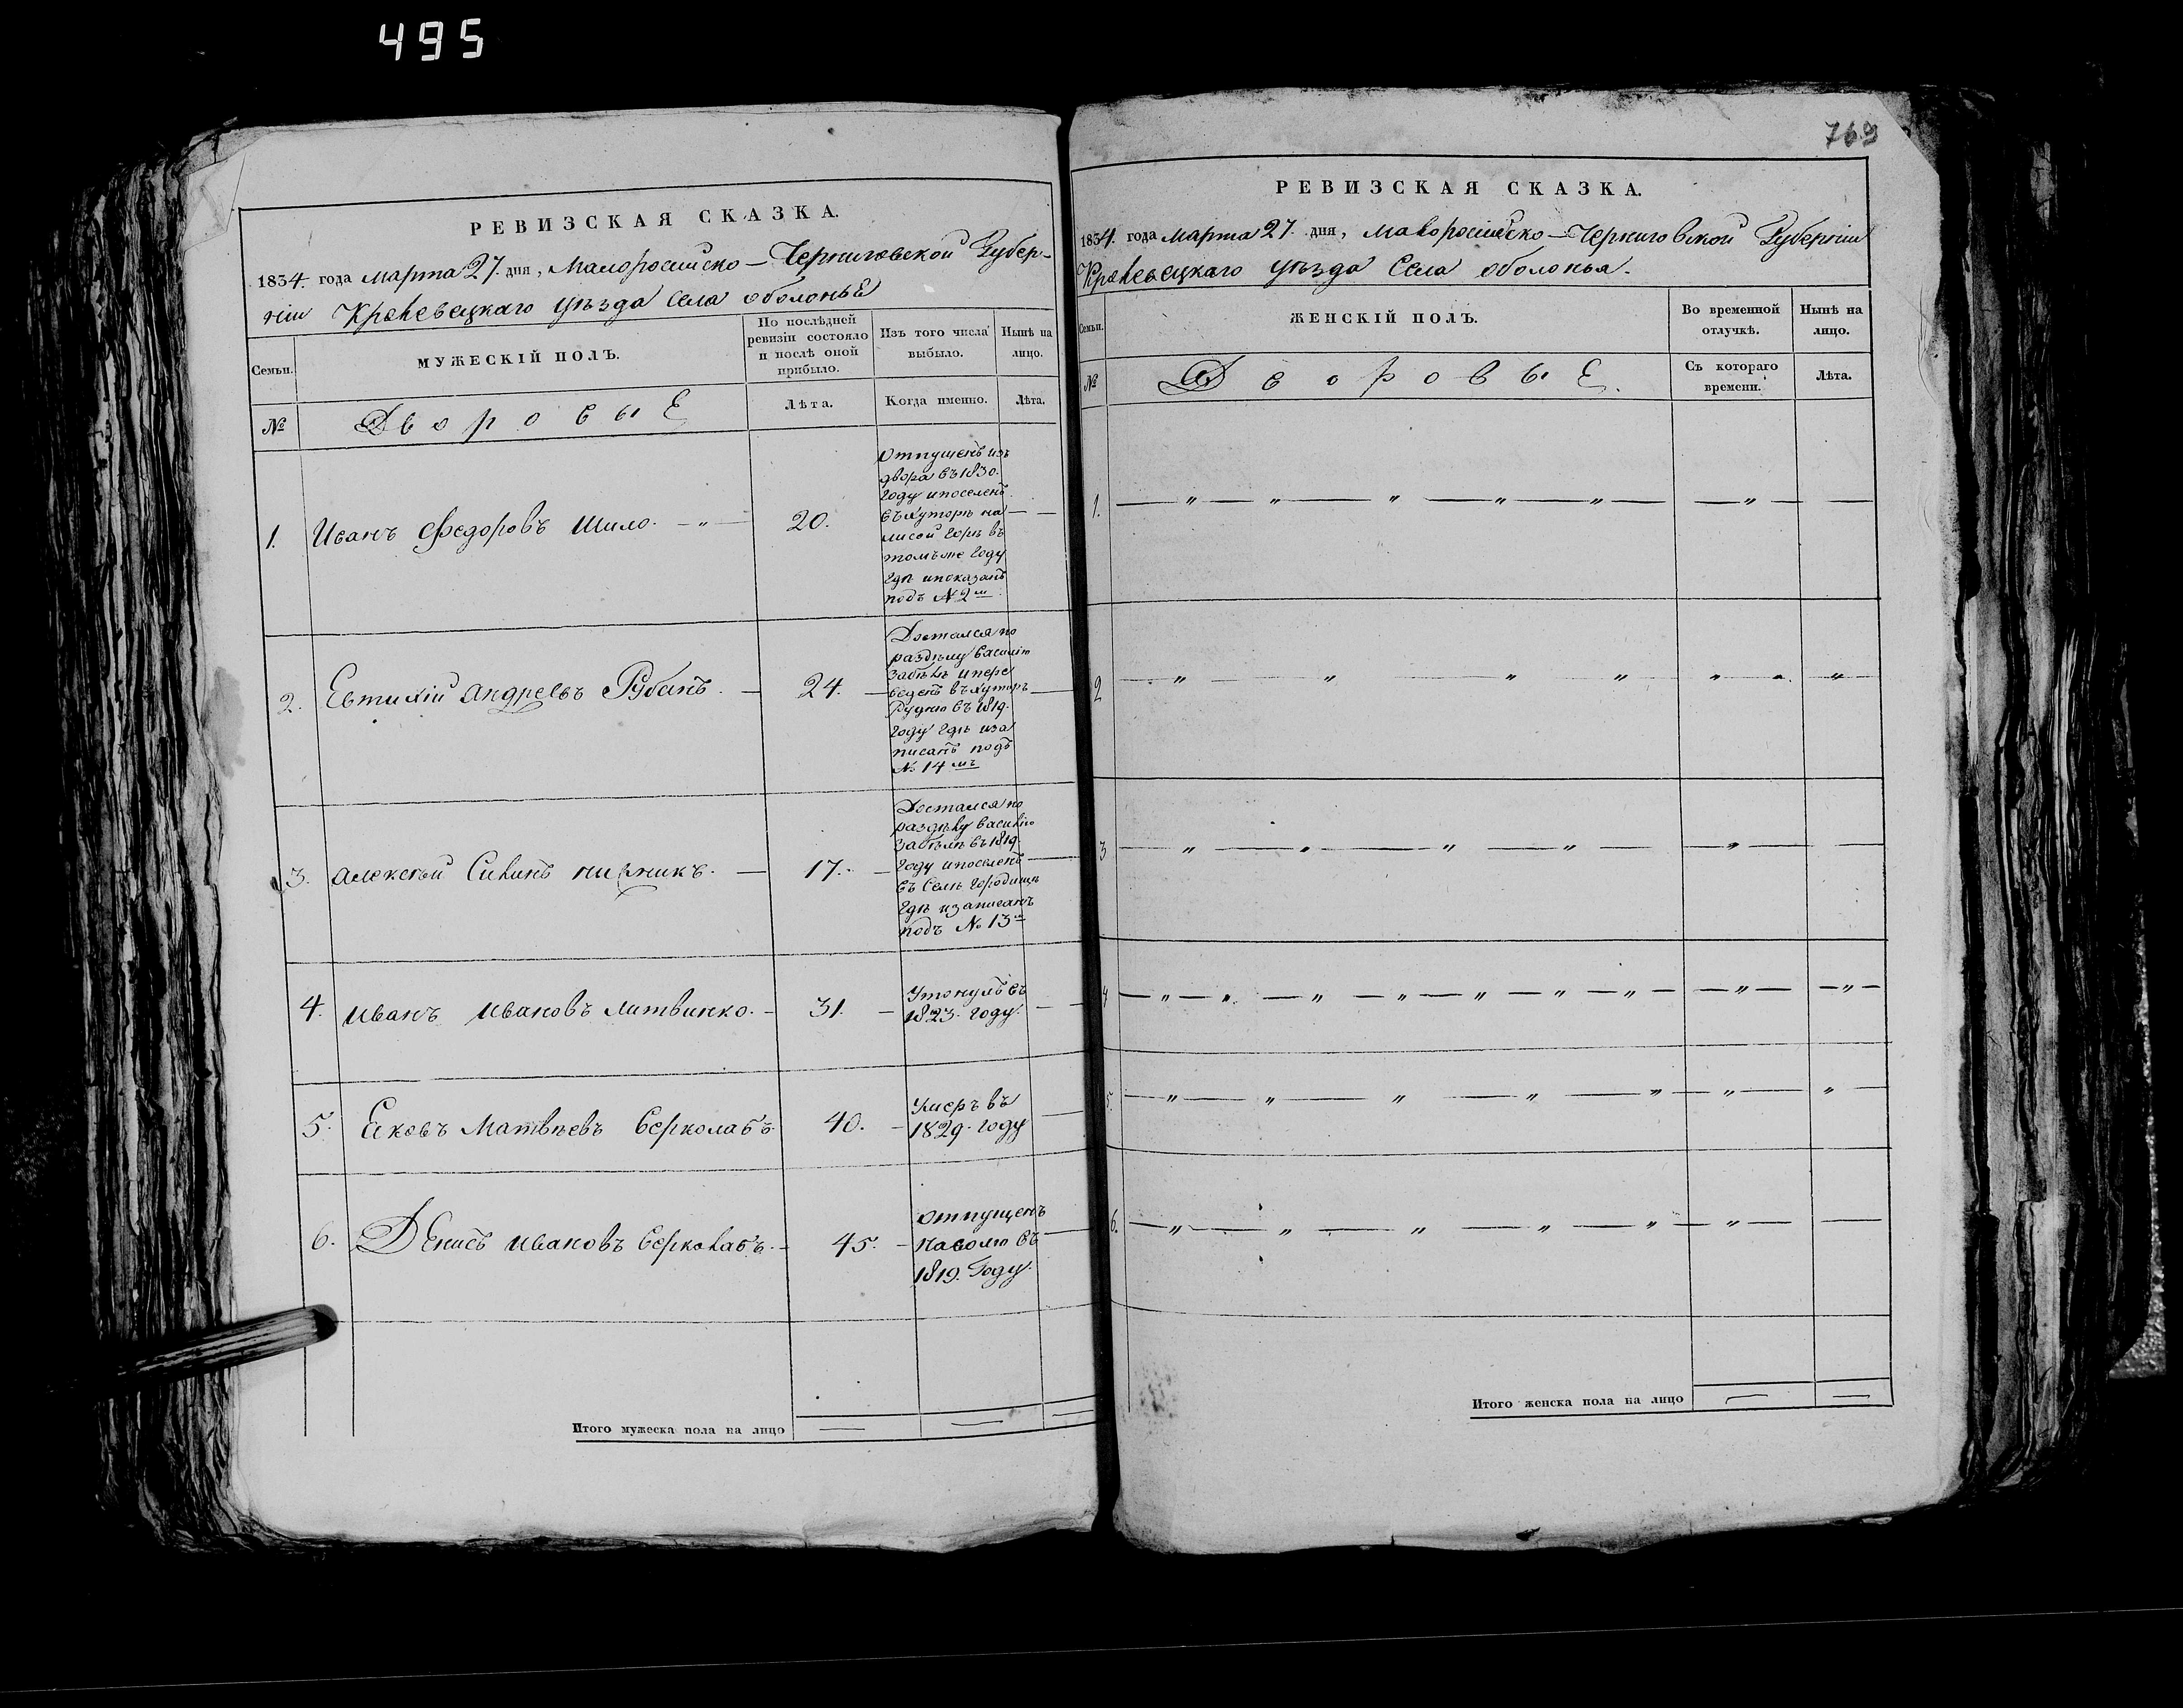 495
РЕВИЗСКАЯ СКАЗКА.
1834. года марта 27. дня, Малоросийско-Черниговской Губер-
ніи Кролевецкаго уѣзда Села оболонье
Семьи.
МУЖЕСКІЙ ПОЛЪ.
По послѣдней
ревизіи состояло
и послѣ оной
прибыло.
Изъ того числа
выбыло.
Нынѣ на
лицо.
№
Дворовые
Лѣта.
Когда именно.
Лѣта.
1. Иванъ Федоровъ Шило. 20.
Отпущенъ изъ
двора въ 1830.
году и поселенъ
въ Хуторѣ на
лисой горѣ въ
томъ же году
гдѣ и показанъ
подъ № 2м
2. Евтихій андреевъ Рубанъ. 24.
Достался по
раздѣлу Василію
Забѣлѣ и пере
веденъ въ Хуторъ
Рудню въ 1819.
году гдѣ и за
писанъ подъ
№ 14мъ
3. алексѣй Силинъ 17.
Достался по
раздѣлу василію
Забѣлѣ въ 1819
году и поселенъ
въ Селѣ городищѣ
гдѣ и записанъ
подъ № 13м
4. иванъ ивановъ литвинко. 31.
Утонулъ въ
1823. году.
5. Яковъ Матвѣевъ Верколабъ 40.
Умеръ въ
1829. году
6. Денисъ ивановъ Верколабъ. 45.
отпущенъ
наволю въ
1819. Году.
Итого мужеска пола на лицо
769
РЕВИЗСКАЯ СКАЗКА.
1834. года марта 27. дня, малоросийско-Черниговской Губерніи
Кролевецкаго уѣзда Села оболонья.
Семьи.
ЖЕНСКІЙ ПОЛЪ.
Во временной
отлучкѣ.
Нынѣ на
лицо.
№
Дворовые.
Съ котораго
времени.
Лѣта.
1. — " — " — " — " — " — " — —
2 " " " " " "
3 — " — " — " — " — " — —
4 — " — " — " — " — " — " — " — " — " —
5. — " — " — " — " — " — " — " —
6. — " — " — " — " — " — " — —
Итого женска пола на лицо